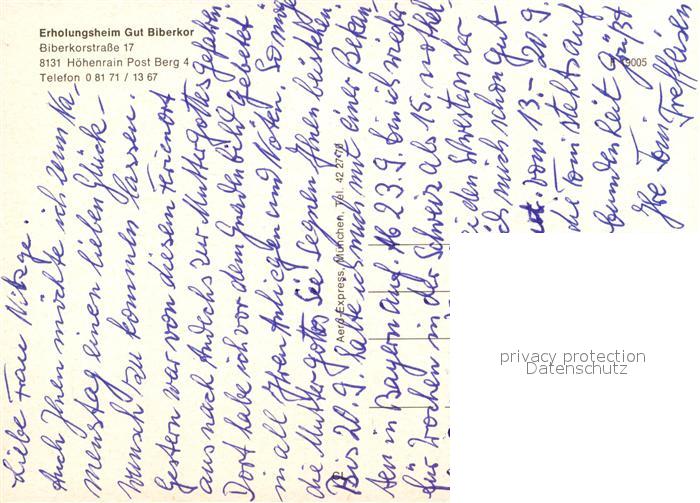 Erholungsheim Gut Biberkor
Biberkorstraße 17
8131 Höhenrain Post Berg 4
Telefon 0 81 71 / 13 67
9005
Aero-Express, München, Tel. 42 27
privacy protection
Datenschutz
Liebe Frau
Auch Ihnen möchte ich zum Na-
menstag einen lieben Glück-
wunsch zu kommen lassen.
Gestern war von diesem Ferienort
aus nach Andechs zur Muttergottes gefahren.
Dort habe ich vor dem Gnadenbild gebetet
in all Ihren Anliegen und Nöten. So möge
die Muttergottes Sie Segnen Ihnen beistehen.
Bis 20.9. halte ich mich mit einer Bekan-
ten in Bayern auf. Ab 23.9. bin ich wieder
für Wochen in der Schweiz als 15.
bei den Schwestern der
ich mich schon gut
vom 13. - 20.9.
die Toni stets auf
bundenheit grüßt
Ihre Toni